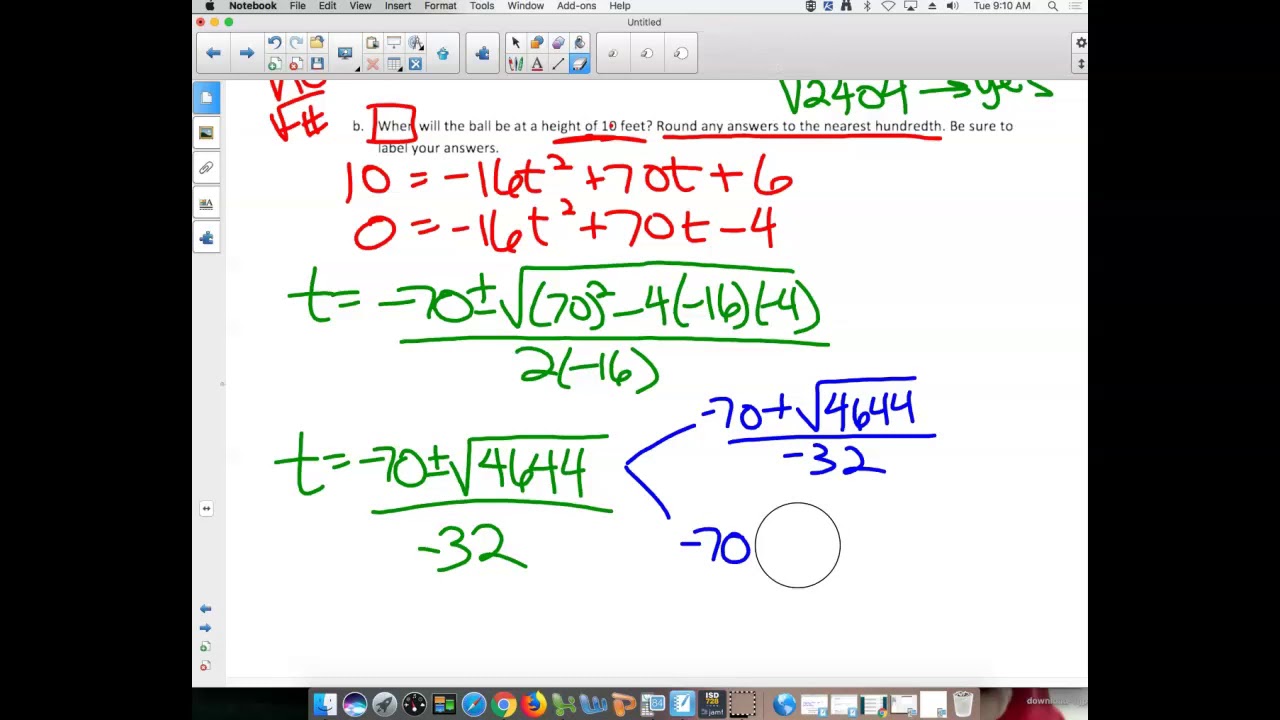 Notebook File Edit View Insert Format Tools Window Add-ons Help Tue 9:10 AM
Untitled
√2404 → yes
√#
b. When will the ball be at a height of 10 feet? Round any answers to the nearest hundredth. Be sure to
label your answers.
10 = -16t² + 70t + 6
0 = -16t² + 70t - 4
t = -70 ± √(70)² - 4(-16)(-4)
2(-16)
-70 + √4644
-32
t = -70 ± √4644
-32
-70
ISD
728